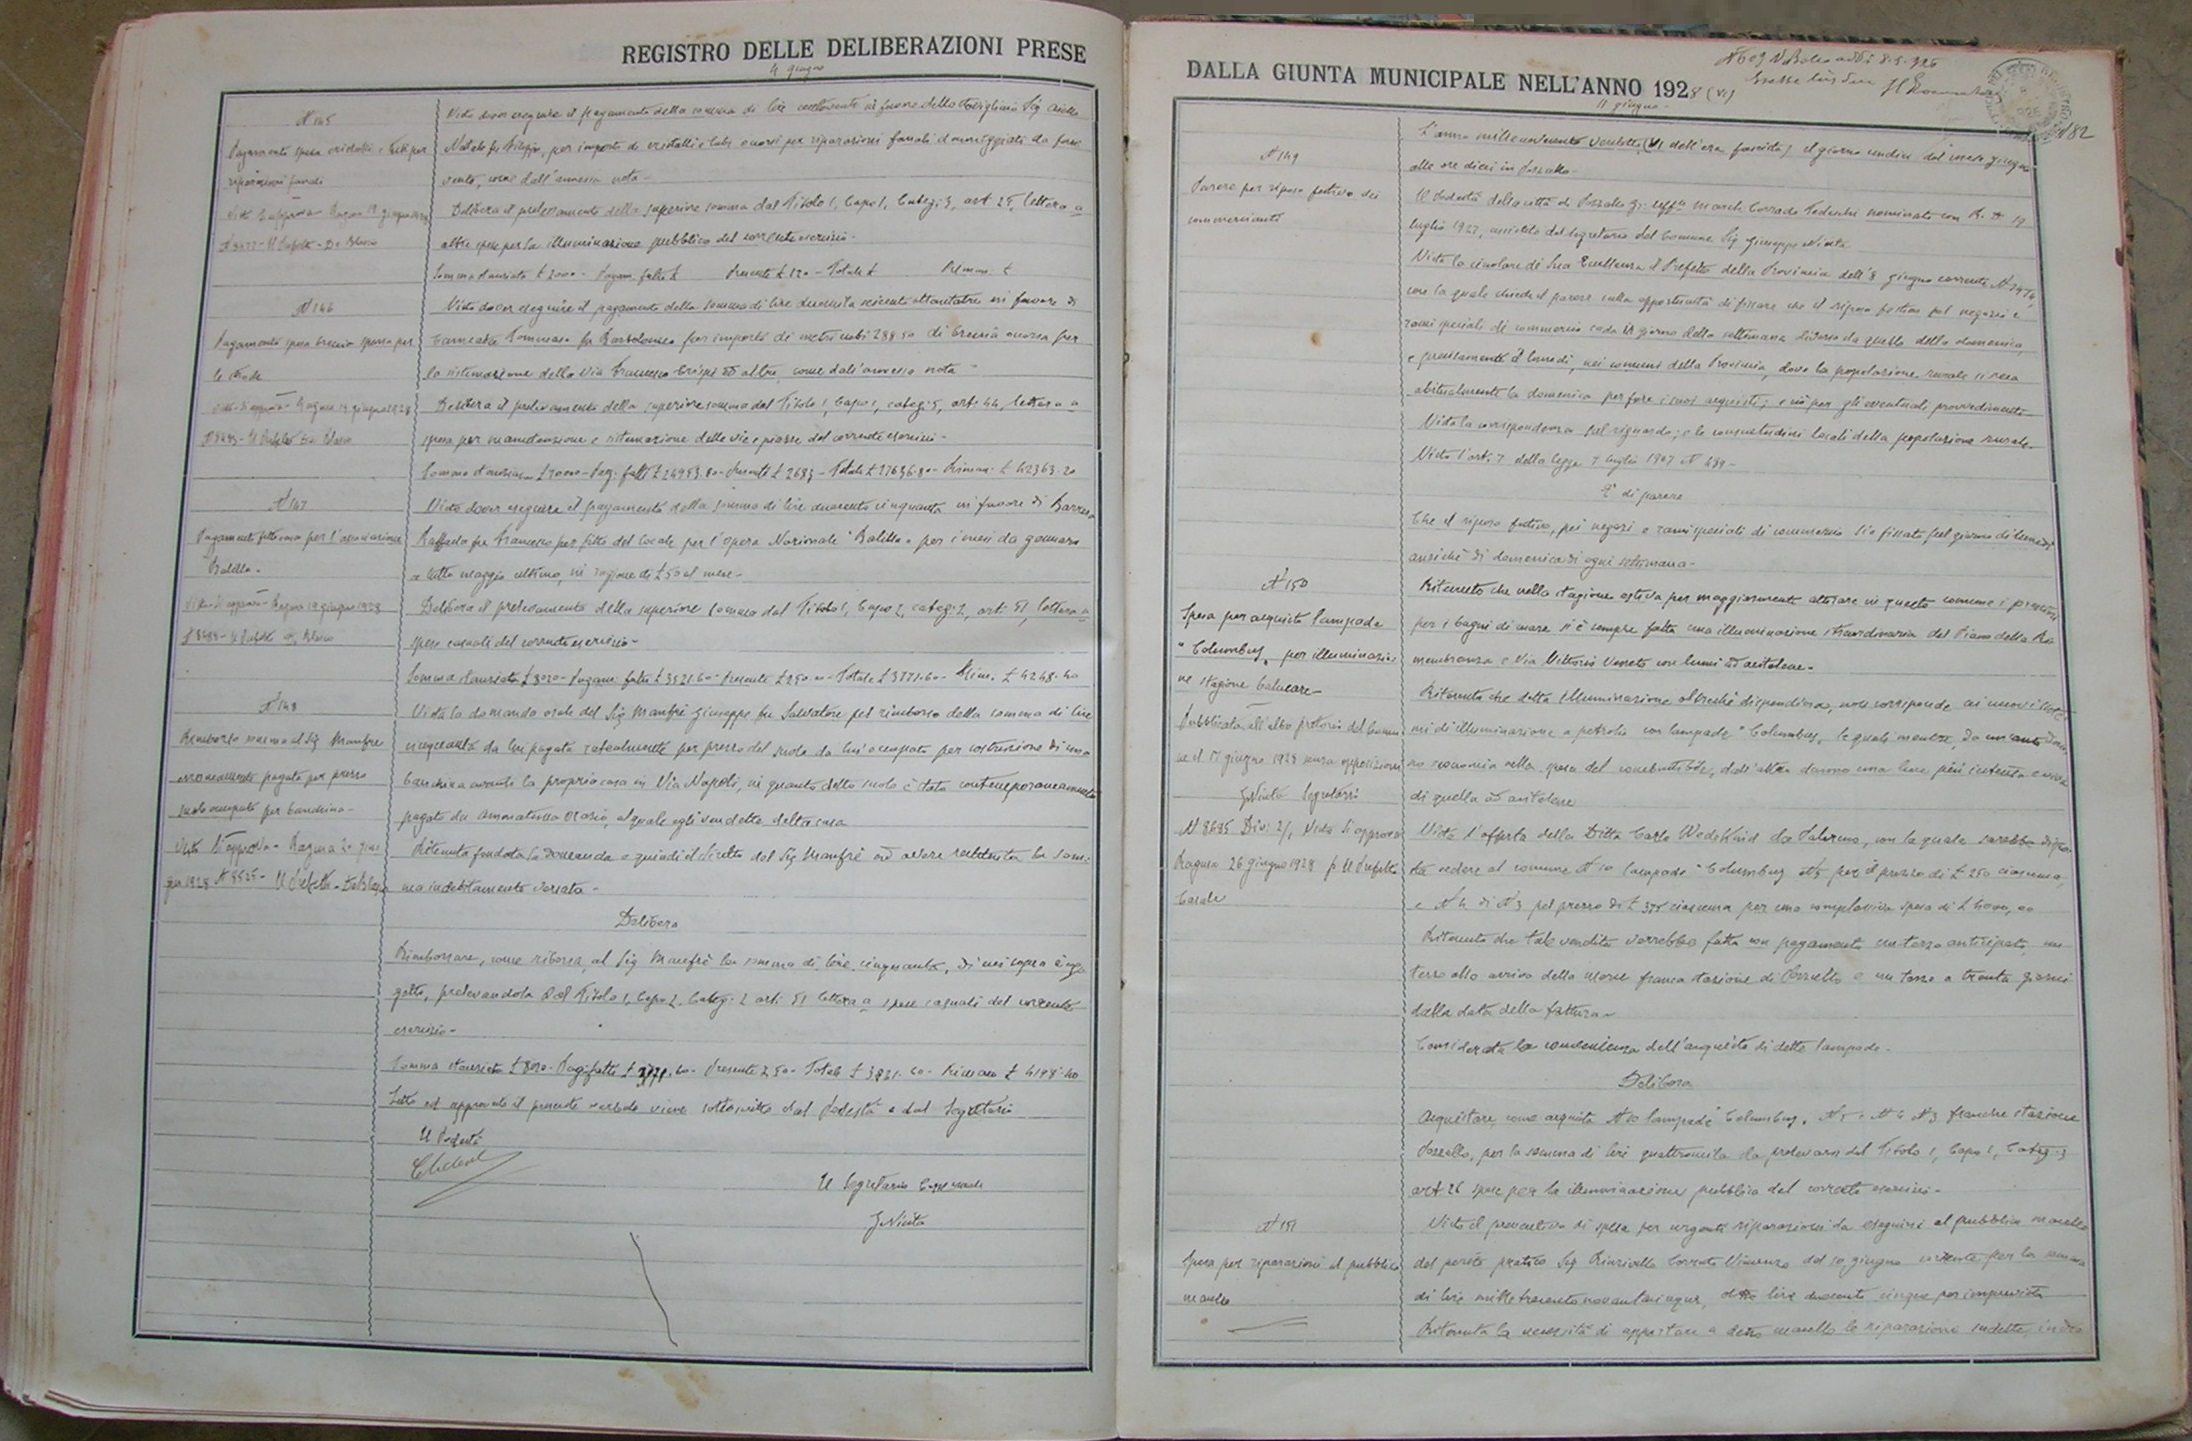 REGISTRO DELLE DELIBERAZIONI PRESE
4 giugno
N 145
Pagamento spesa cristalli e tubi per
riparazioni fanali
Visto dover eseguire il pagamento della somma di lire centoventi in favore dello stovigliaio Sig.
Natale fu Filippo, per importo di cristalli e tubi occorsi per riparazioni fanali danneggiati da forte
vento, come dall'annessa nota-
Delibera il prelevamento della superiore somma dal Titolo 1, Capo 1, Categ. 3, art 25, lettera a
altre spese per la illuminazione pubblica del corrente esercizio-
Somma stanziata £ 2000- Pagam. fatti £ Presente £ 120- Totale £ Riman. £
N 146
Pagamento spesa breccia sparsa per
le strade
Visto dover eseguire il pagamento della somma di lire duemila seicento ottantatre in favore di
Tommaso fu Bartolomeo per importo di metri cubi 288.50 di breccia occorsa per
la sistemazione della Via Francesco Crispi ed altre, come dall'annessa nota-
Delibera il prelevamento della superiore somma dal Titolo 1, Capo 1, categ. 5, art. 44, lettera a
spesa per manutenzione e sistemazione delle vie e piazze del corrente esercizio-
Somma stanziata £ 70000- Pag. fatti £ 24953.80- Presente £ 2683- Totale £ 27636.80- Riman: £ 42363.20
N 147
Pagamento fitto casa per l'associazione
Balilla-
Visto dover eseguire il pagamento della somma di lire duecento cinquanta in favore di
Raffaele fu Francesco per fitto del locale per l'opera Nazionale "Balilla" per i mesi da gennaro
a tutto maggio ultimo, in ragione di £ 50 al mese-
Delibera il prelevamento della superiore somma dal Titolo 1, Capo 2, categ. 2, art. 51, lettera a
spese casuali del corrente esercizio-
Somma stanziata £ 8020- Pagam. fatti £ 3521.60- Presente £ 250.00- Totale £ 3771.60- Rim. £ 4248.40
N 148
Rimborso somma al Sig Manfrè
erroneamente pagata per prezzo
suolo occupato per banchina-
Visto Si approva- Ragusa 20 giu-
gno 1928 N 8525- Il Prefetto-
Vista la domanda orale del Sig Manfrè Giuseppe fu Salvatore pel rimborso della somma di lire
cinquanta da lui pagata ratealmente per prezzo del suolo da lui occupato per costruzione di una
banchina avanti la propria casa in Via Napoli, in quanto detto suolo è stato contemporaneamente
pagato da Ammatuna Orazio, al quale egli vendette detta casa
Ritenuta fondata la domanda e quindi il diritto del Sig Manfrè ad avere restituita la som-
ma indebitamente versata-
Delibera
Rimborsare, come rimborsa, al Sig Manfrè la somma di lire cinquanta, di cui sopra è og-
getto, prelevandola dal Titolo 1, Capo 2, Categ. 2 art. 51 lettera a spese casuali del corrente
esercizio-
Somma stanziata £ 8020- Pag. fatti £ 3771.60- Presente £ 50- Totale £ 3821.60- Rimane £ 4198.40
Letto ed approvato il presente verbale viene sottoscritto dal Podestà e dal Segretario
Il Podestà
Il Segretario Comunale
DALLA GIUNTA MUNICIPALE NELL'ANNO 1928 (VI)
11 giugno-
182
L'anno millenovecento ventotto (VI dell'era fascista) il giorno undici del mese giugno
alle ore dieci in Pozzallo-
Il Podestà della città di Pozzallo March. Corrado Tedeschi nominato con R. D. 19
luglio 1927, assistito dal segretario del Comune Sig Giuseppe
N 149
Parere per riposo festivo dei
commercianti
Vista la circolare di Sua Eccellenza il Prefetto della Provincia dell'8 giugno corrente N
con la quale chiede il parere sulla opportunità di fissare che il riposo festivo pei negozi e
rami speciali di commercio cada in giorno della settimana diverso da quello della domenica,
e precisamente il lunedì, nei comuni della Provincia, dove la popolazione rurale si reca
abitualmente la domenica per fare i suoi acquisti; e ciò per gli eventuali provvedimenti-
Vista la corrispondenza pel riguardo; e le consuetudini locali della popolazione rurale-
Visto l'art. 7 della legge 7 luglio 1907 N 489-
È di parere
Che il riposo festivo, pei negozi e rami speciali di commercio sia fissato pel giorno di lunedì
anzichè di domenica di ogni settimana-
N 150
Spesa per acquisto lampade
"Columbus" per illuminazio-
ne stagione balneare-
Pubblicata all'albo pretorio del Comu-
ne il 17 giugno 1928 senza opposizioni
Segretario
N 8695 Div: 2/, Visto Si approva
Ragusa 26 giugno 1928 p Il Prefetto
Casale
Ritenuto che nella stagione estiva per maggiormente attirare in questo comune i
per i bagni di mare si è sempre fatta una illuminazione straordinaria del Piano della Ri-
membranza e Via Vittorio Veneto con lumi ad acetilene-
Ritenuto che detta illuminazione oltrechè dispendiosa, non corrisponde ai nuovi siste-
mi di illuminazione a petrolio con lampade "Columbus", le quali mentre, da un canto dan-
no economia nella spesa del combustibile, dall'altra danno una luce più intensa e viva
di quella ad acetilene
Vista l'offerta della Ditta Carlo Wedekind da Palermo, con la quale sarebbe dispo-
sta cedere al comune N 10 lampade "Columbus N5 per il prezzo di £ 250 ciascuna,
e N 4 di N 3 pel prezzo di £ 375 ciascuna per una complessiva spesa di £ 4000,00
Ritenuto che tale vendita verrebbe fatta con pagamento un terzo anticipato, un
terzo allo arrivo della merce franca stazione di Pozzallo e un terzo a trenta giorni
dalla data della fattura-
Considerata la convenienza dell'acquisto di dette lampade-
Delibera
Acquistare, come acquista N 10 lampade "Columbus" N 5 e N 4 N 3 franche stazione
Pozzallo, per la somma di lire quattromila da prelevarsi dal Titolo 1, Capo 1, Categ. 3
art 26 spese per la illuminazione pubblica del corrente esercizio-
N 151
Spesa per riparazioni al pubblico
macello
Visto il preventivo di spesa per urgenti riparazioni da eseguirsi al pubblico macello
del perito pratico Sig Corrado Vincenzo del 10 giugno corrente per la somma
di lire mille trecento novantacinque, oltre lire duecento cinque per imprevisti
Ritenuta la necessità di apportare a detto macello le riparazioni suddette,